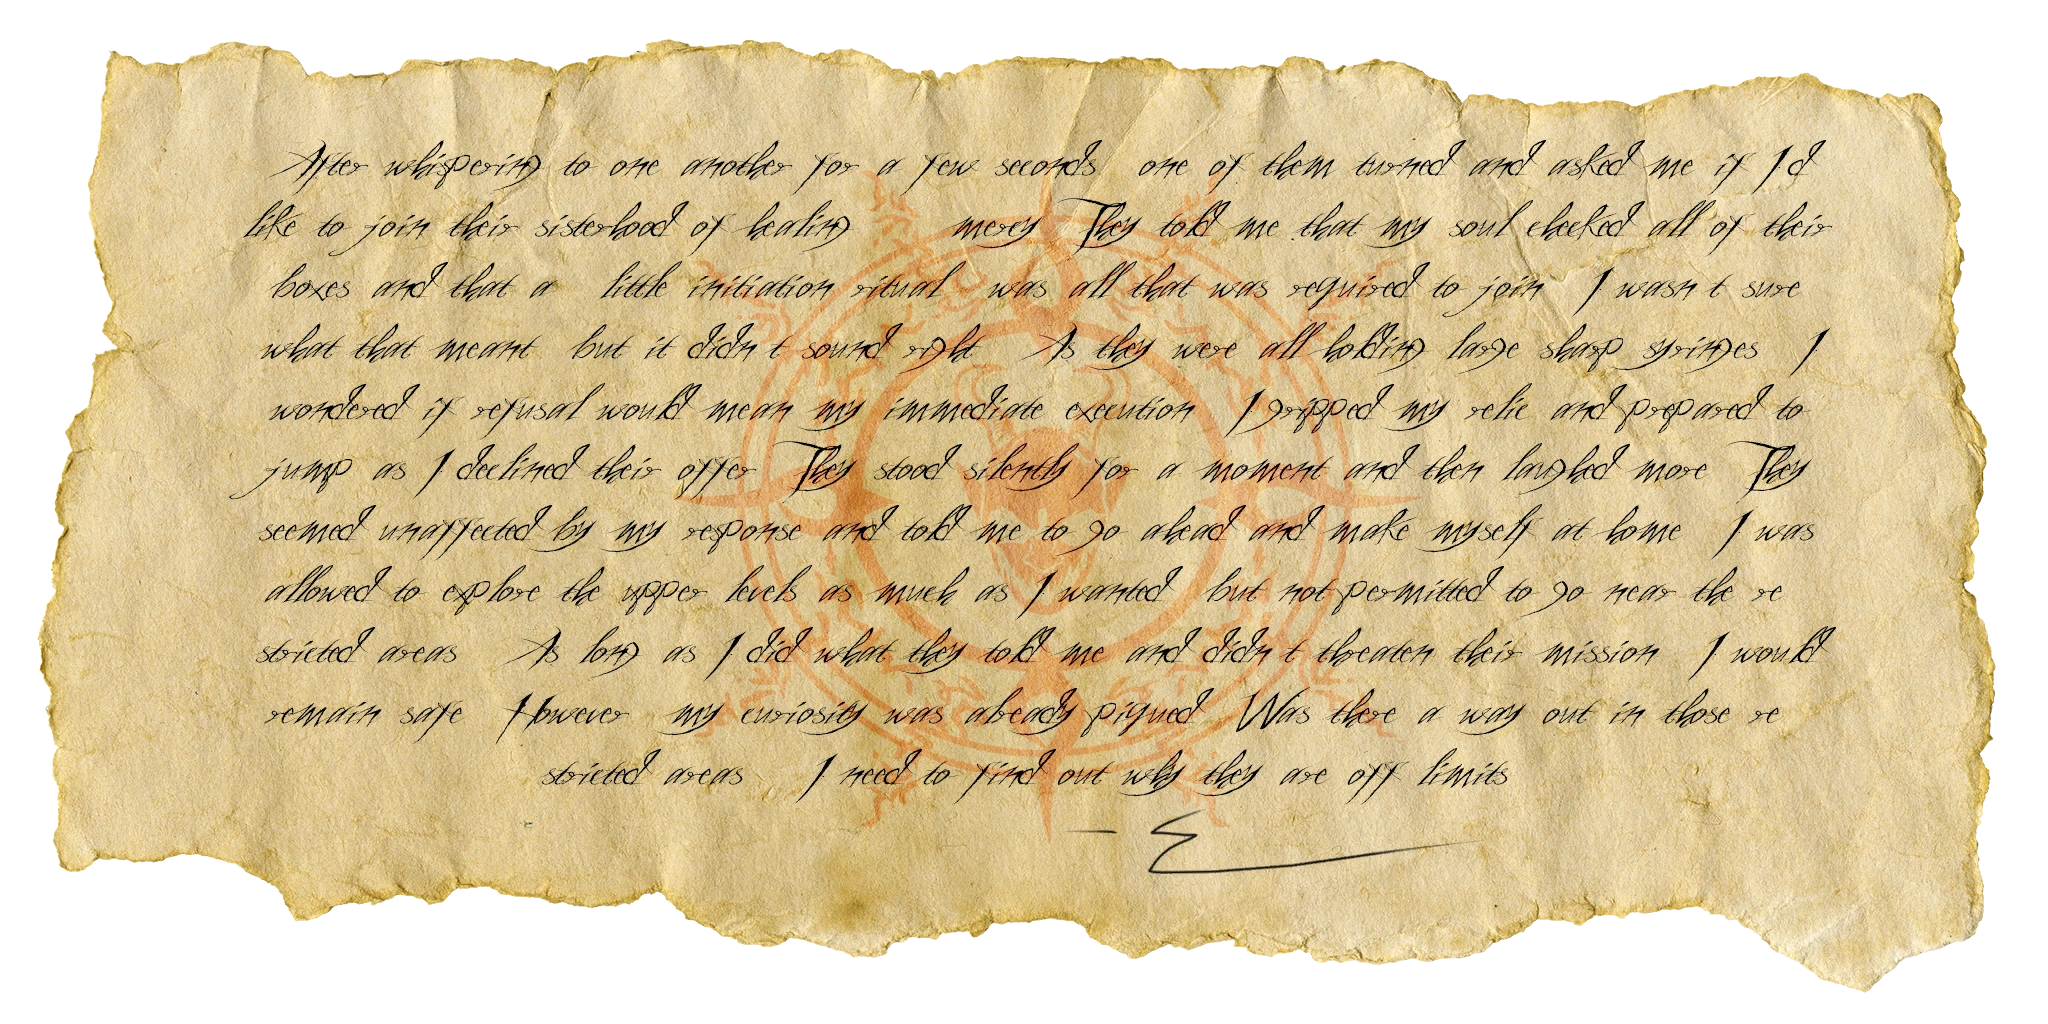 After whispering to one another for a few seconds one of them turned and asked me if I d
like to join their sisterhood of healing mercy They told me that my soul checked all of their
boxes and that a little initiation ritual was all that was required to join I wasn t sure
what that meant but it didn t sound right As they were all holding large sharp syringes I
wondered if refusal would mean my immediate execution I gripped my relic and prepared to
jump as I declined their offer They stood silently for a moment and then laughed more They
seemed unaffected by my response and told me to go ahead and make myself at home I was
allowed to explore the upper levels as much as I wanted but not permitted to go near the re
stricted areas As long as I did what they told me and didn t threaten their mission I would
remain safe However my curiosity was already piqued Was there a way out in those re
stricted areas I need to find out why they are off limits
- E